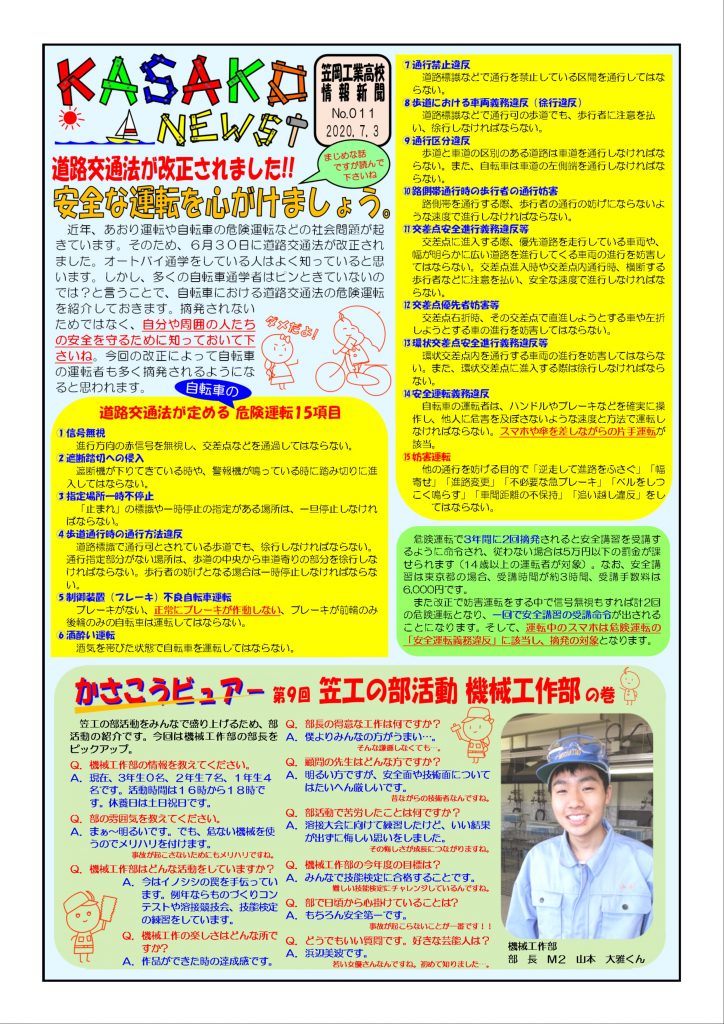 KASAKO
NEWS
笠岡工業高校
情報新聞
No.011
2020.7.3
まじめな話
ですが読んで
下さいね
道路交通法が改正されました!!
安全な運転を心がけましょう。
近年、あおり運転や自転車の危険運転などの社会問題が起
きています。そのため、６月３０日に道路交通法が改正され
ました。オートバイ通学をしている人はよく知っていると思
います。しかし、多くの自転車通学者はピンときていないの
では？と言うことで、自転車における道路交通法の危険運転
を紹介しておきます。摘発されない
ためではなく、自分や周囲の人たち
の安全を守るために知っておいて下
さいね。今回の改正によって自転車
の運転者も多く摘発されるようにな
ると思われます。
ダメだよ!
自転車の
道路交通法が定める 危険運転15項目
1 信号無視
進行方向の赤信号を無視し、交差点などを通過してはならない。
2 遮断踏切への侵入
遮断機が下りてきている時や、警報機が鳴っている時に踏み切りに進
入してはならない。
3 指定場所一時不停止
「止まれ」の標識や一時停止の指定がある場所は、一旦停止しなけれ
ばならない。
4 歩道通行時の通行方法違反
道路標識で通行可とされている歩道でも、徐行しなければならない。
通行指定部分がない場所は、歩道の中央から車道寄りの部分を徐行しな
ければならない。歩行者の妨げとなる場合は一時停止しなければならな
い。
5 制御装置（ブレーキ）不良自転車運転
ブレーキがない、正常にブレーキが作動しない、ブレーキが前輪のみ
後輪のみの自転車は運転してはならない。
6 酒酔い運転
酒気を帯びた状態で自転車を運転してはならない。
7 通行禁止違反
道路標識などで通行を禁止している区間を通行してはな
らない。
8 歩道における車両義務違反（徐行違反）
道路標識などで通行可の歩道でも、歩行者に注意を払
い、徐行しなければならない。
9 通行区分違反
歩道と車道の区別のある道路は車道を通行しなければな
らない。また、自転車は車道の左側端を通行しなければな
らない。
10 路側帯通行時の歩行者の通行妨害
路側帯を通行する際、歩行者の通行の妨げにならないよ
うな速度で進行しなければならない。
11 交差点安全進行義務違反等
交差点に進入する際、優先道路を走行している車両や、
幅が明らかに広い道路を進行してくる車両の進行を妨害し
てはならない。交差点進入時や交差点内通行時、横断する
歩行者などに注意を払い、安全な速度で進行しなければな
らない。
12 交差点優先者妨害等
交差点右折時、その交差点で直進しようとする車や左折
しようとする車の進行を妨害してはならない。
13 環状交差点安全進行義務違反等
環状交差点内を通行する車両の進行を妨害してはならな
い。また、環状交差点に進入する際は徐行しなければなら
ない。
14 安全運転義務違反
自転車の運転者は、ハンドルやブレーキなどを確実に操
作し、他人に危害を及ぼさないような速度と方法で運転し
なければならない。スマホや傘を差しながらの片手運転が
該当。
15 妨害運転
他の通行を妨げる目的で「逆走して進路をふさぐ」「幅
寄せ」「進路変更」「不必要な急ブレーキ」「ベルをしつ
こく鳴らす」「車間距離の不保持」「追い越し違反」をし
てはならない。
危険運転で３年間に2回摘発されると安全講習を受講す
るように命令され、従わない場合は5万円以下の罰金が課
せられます（14歳以上の運転者が対象）。なお、安全講
習は東京都の場合、受講時間が約３時間、受講手数料は
6,000円です。
また改正で妨害運転をする中で信号無視もすれば計2回
の危険運転となり、一回で安全講習の受講命令が出される
ことになります。そして、運転中のスマホは危険運転の
「安全運転義務違反」に該当し、摘発の対象となります。
かさこうビュアー 第9回 笠工の部活動 機械工作部 の巻
笠工の部活動をみんなで盛り上げるため、部
活動の紹介です。今回は機械工作部の部長を
ピックアップ。
Q. 機械工作部の情報を教えてください。
A. 現在、3年生0名、2年生7名、1年生4
名です。活動時間は16時から18時で
す。休養日は土日祝日です。
Q. 部の雰囲気を教えてください。
A. まぁ〜明るいです。でも、危ない機械を使
うのでメリハリを付けます。
事故が起こさないためにもメリハリですね。
Q. 機械工作部はどんな活動をしていますか？
A. 今はイノシシの罠を手伝ってい
ます。例年ならものづくりコン
テストや溶接競技会、技能検定
の練習をしています。
Q. 機械工作の楽しさはどんな所で
すか？
A. 作品ができた時の達成感です。
Q. 部長の得意な工作は何ですか？
A. 僕よりみんなの方がうまい…。
そんな謙遜しなくても…。
Q. 顧問の先生はどんな方ですか？
A. 明るい方ですが、安全面や技術面について
はたいへん厳しいです。
昔ながらの技術者なんですね。
Q. 部活動で苦労したことは何ですか？
A. 溶接大会に向けて練習したけど、いい結果
が出ずに悔しい思いをしました。
その悔しさが成長につながりますね。
Q. 機械工作部の今年度の目標は？
A. みんなで技能検定に合格することです。
難しい技能検定にチャレンジしているんですね。
Q. 部で日頃から心掛けていることは？
A. もちろん安全第一です。
事故が起こらないことが一番です！！
Q. どうでもいい質問です。好きな芸能人は？
A. 浜辺美波です。
若い女優さんなんですね。初めて知りました…。
機械工作部
部 長 M2 山本 大雅くん